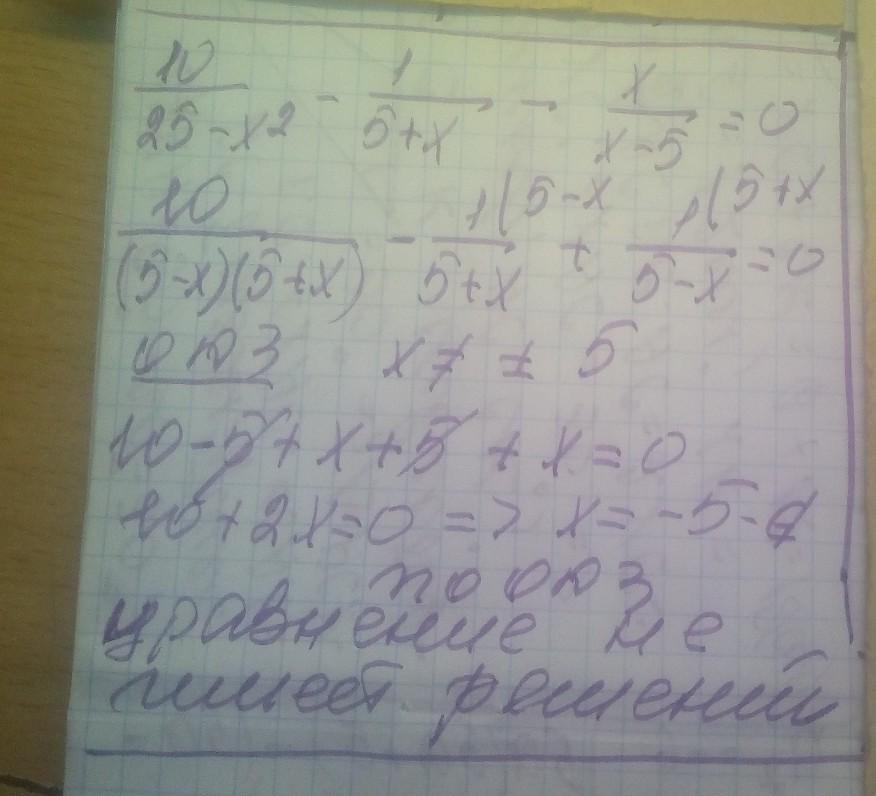 10/(25-x2) - 1/(5+x) - x/(x-5) = 0
10/((5-x)(5+x)) - 1(5-x/(5+x) + 1(5+x/(5-x) = 0
ОДЗ x ≠ ± 5
10-5+x+5+x=0
10+2x=0 => x=-5-∉
по ОДЗ
уравнение не
имеет решений